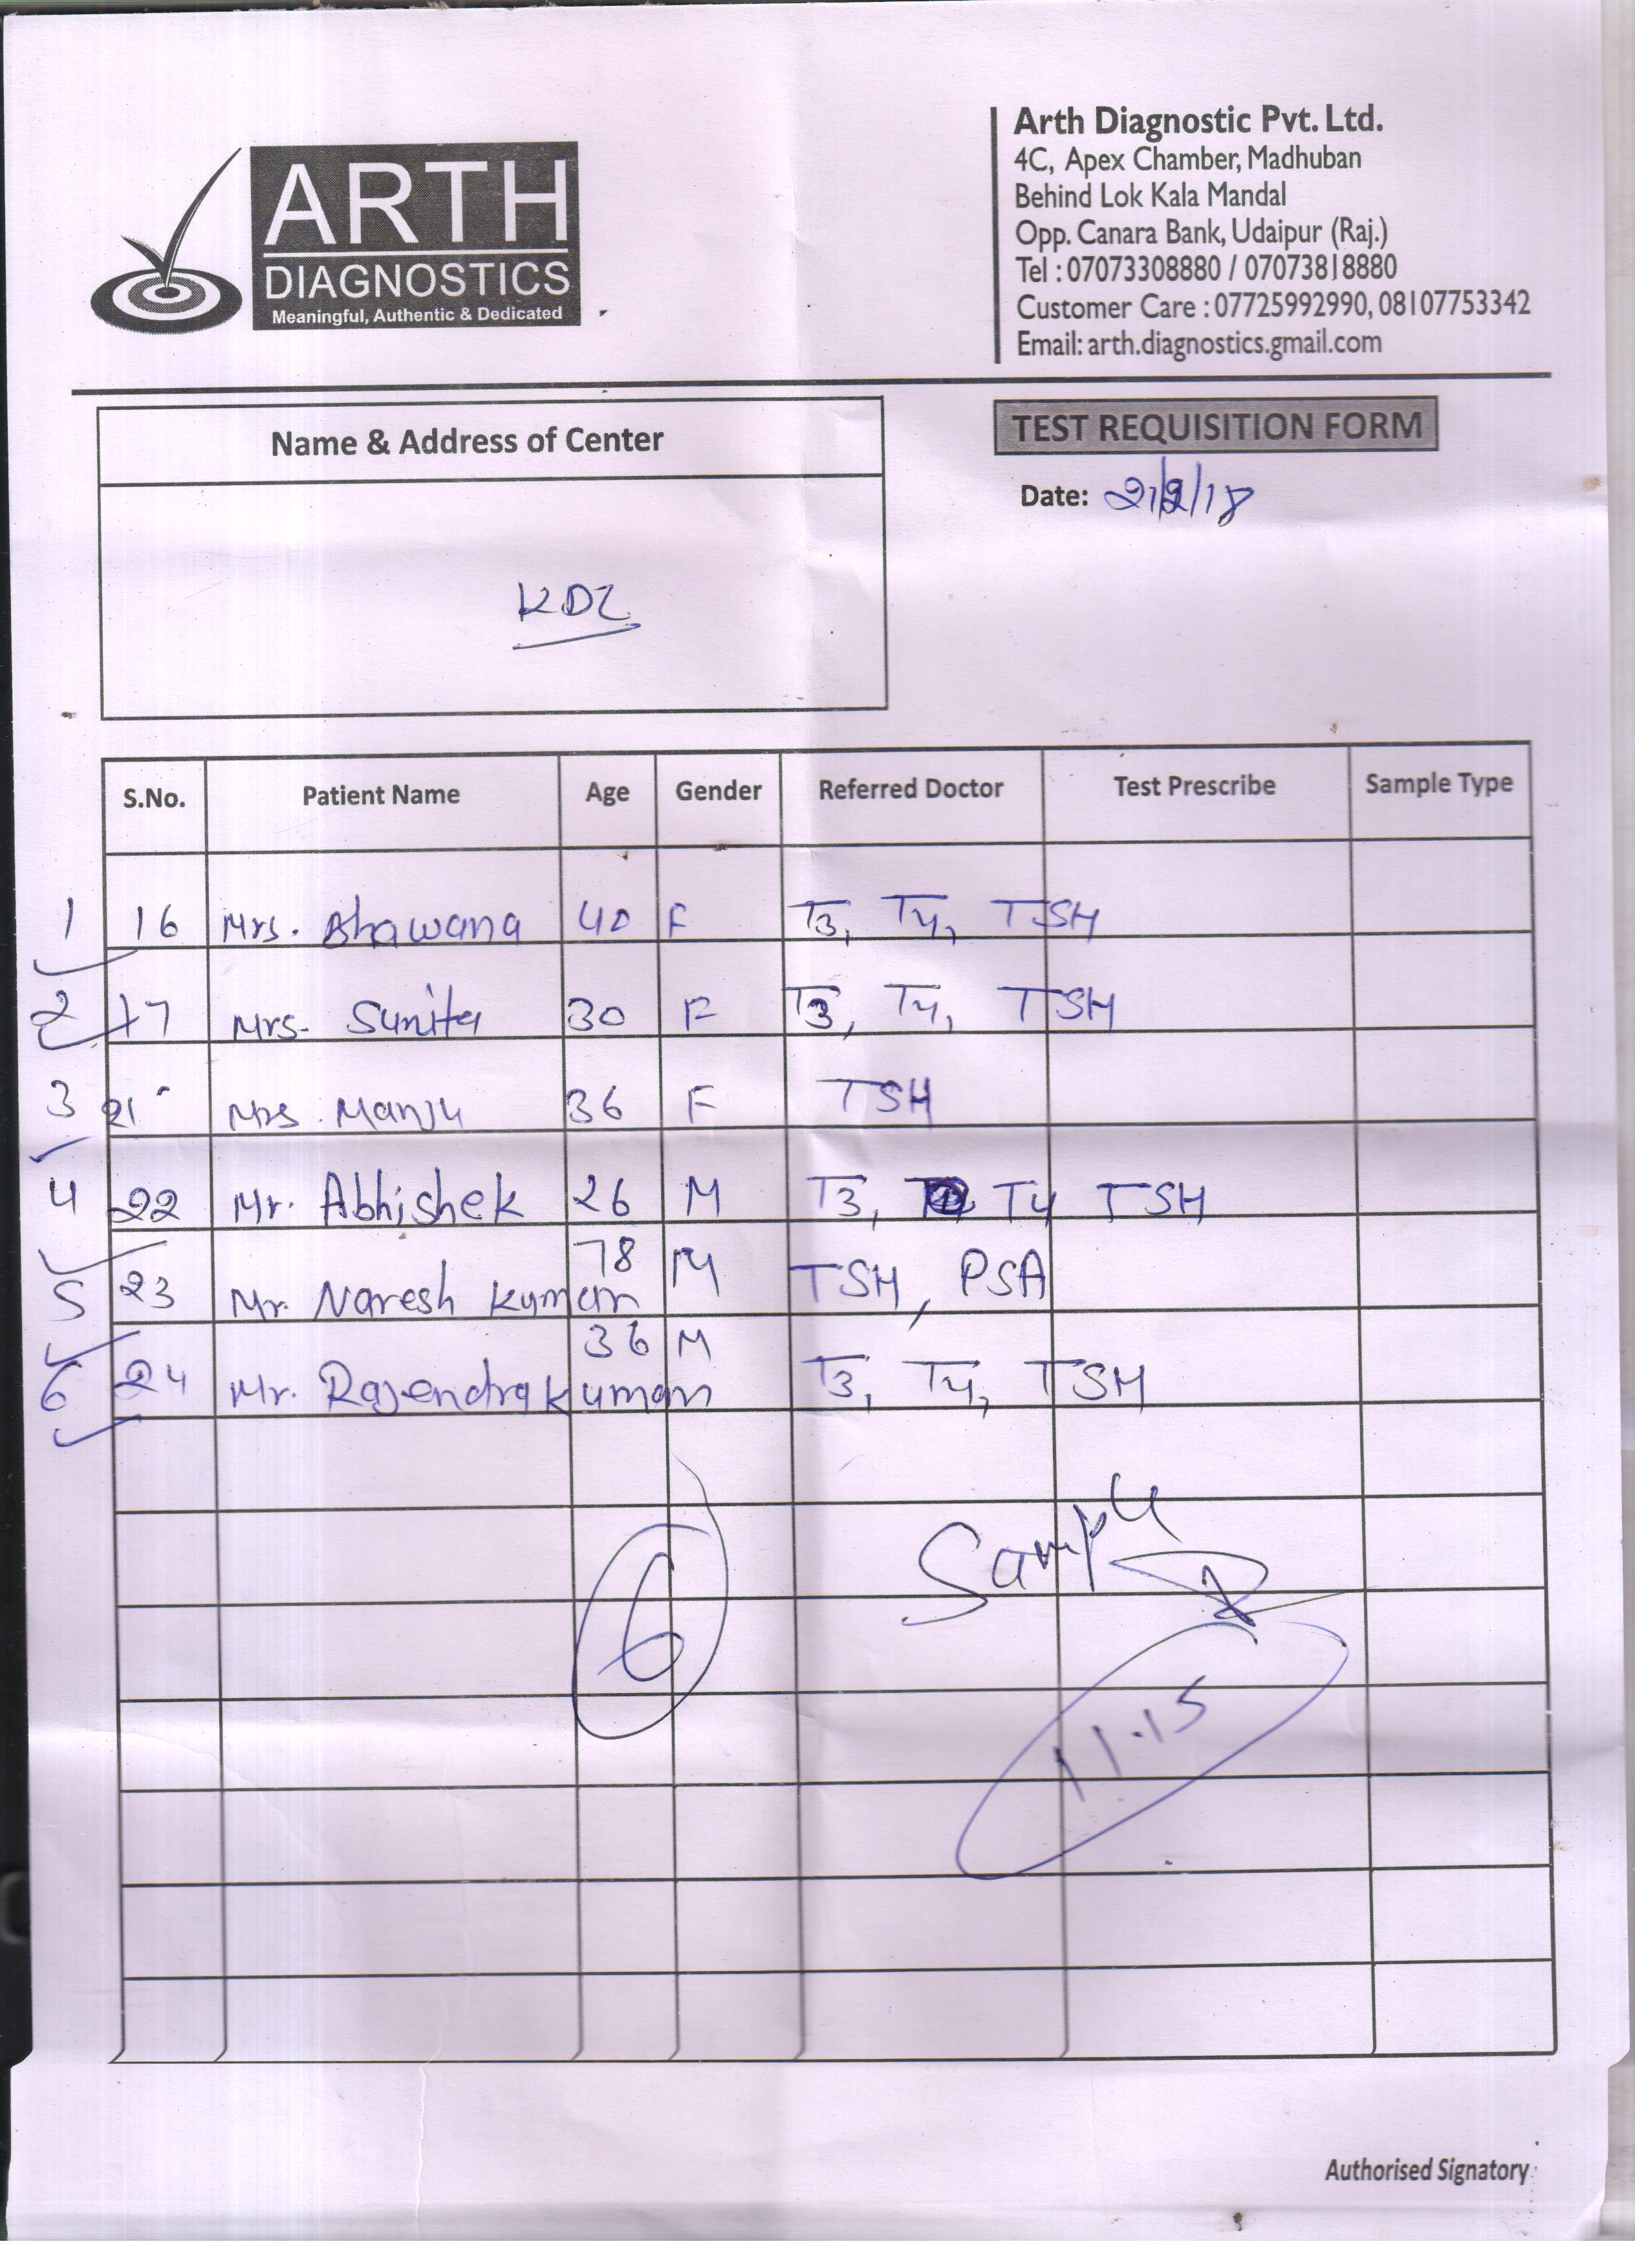 ARTH
DIAGNOSTICS
Meaningful, Authentic & Dedicated
Arth Diagnostic Pvt. Ltd.
4C, Apex Chamber, Madhuban
Behind Lok Kala Mandal
Opp. Canara Bank, Udaipur (Raj.)
Tel : 07073308880 / 07073818880
Customer Care : 07725992990, 08107753342
Email: arth.diagnostics.gmail.com
Name & Address of Center
TEST REQUISITION FORM
Date: 21/2/18
S.No. Patient Name Age Gender Referred Doctor Test Prescribe Sample Type
1 16 Mrs. Bhawana 40 F T3, T4, TSH
2 17 Mrs. Sunita 30 F T3, T4, TSH
3 21 Mrs. Manju 36 F TSH
4 22 Mr. Abhishek 26 M T3, T4 TSH
5 23 Mr. Naresh Kumar 78 M TSH, PSA
6 24 Mr. Rajendra Kumar 36 M T3, T4, TSH
6
Sample
11.15
Authorised Signatory